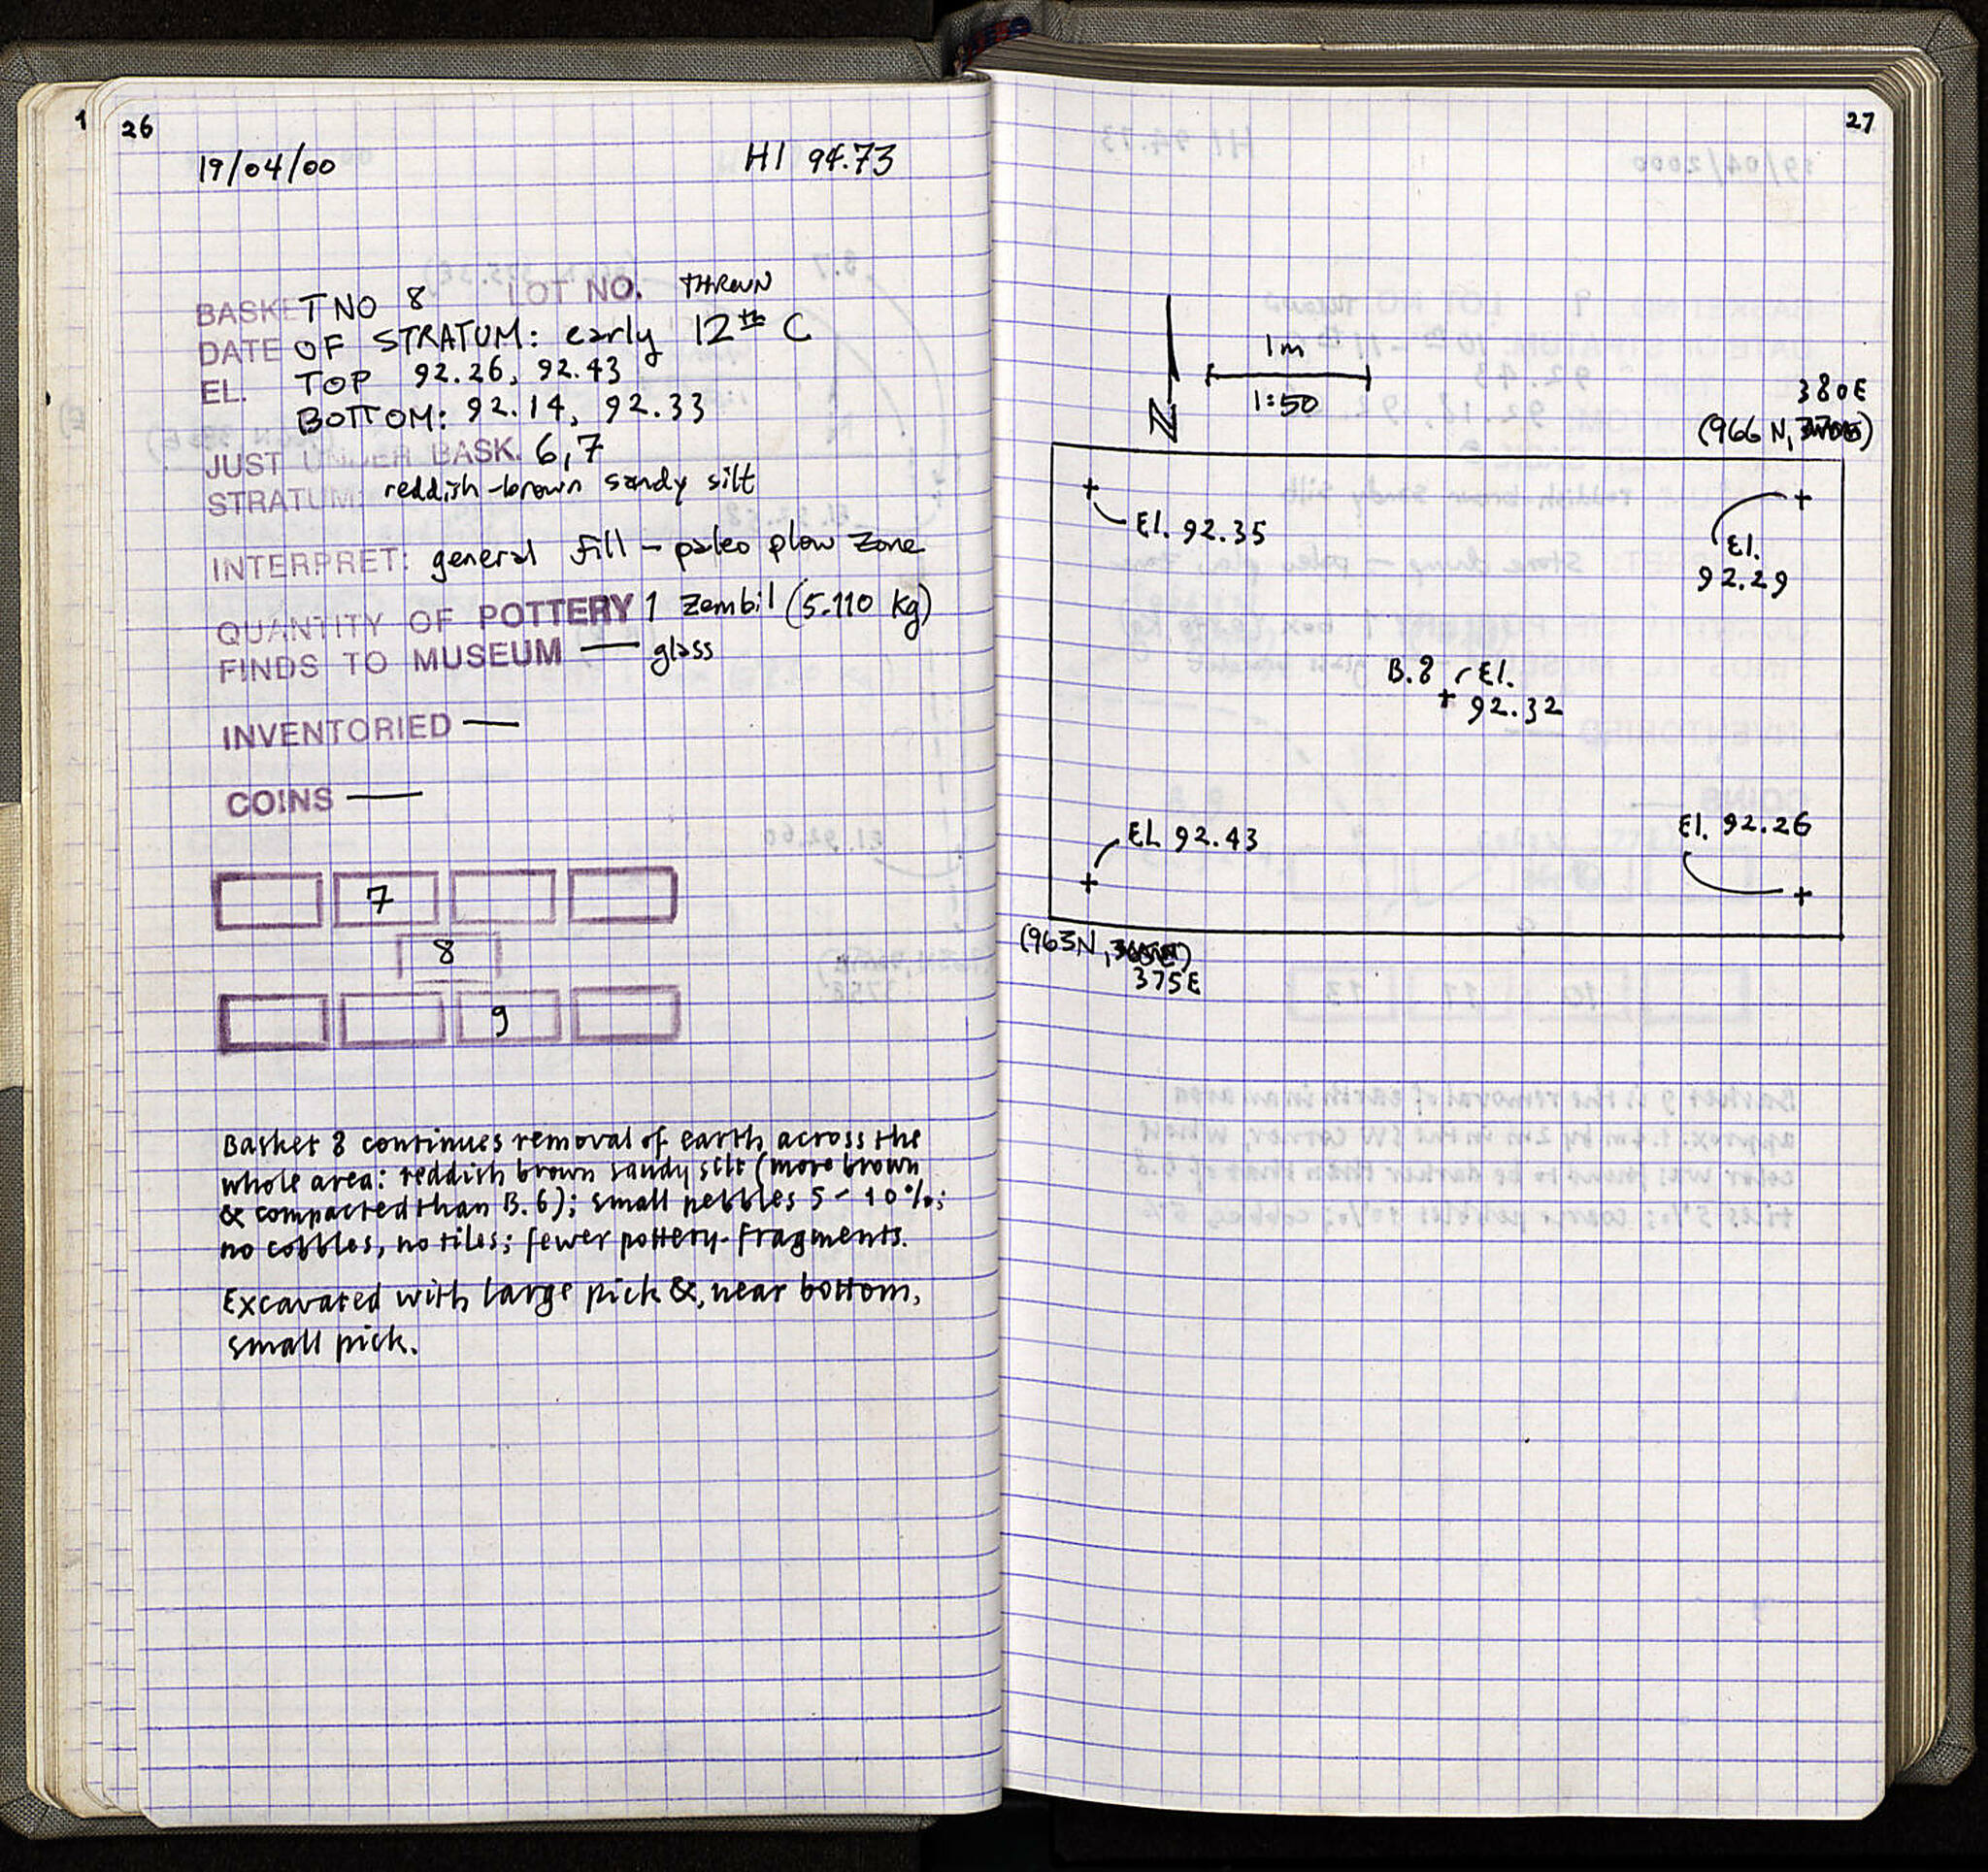 1
26
19/04/00 HI 94.73
BASKET NO 8 LOT NO. THROWN
DATE OF STRATUM: early 12th C
EL. TOP 92.26, 92.43
BOTTOM: 92.14, 92.33
JUST UNDER BASK. 6,7
STRATUM: reddish-brown sandy silt
INTERPRET: general fill – paleo plow zone
QUANTITY OF POTTERY 1 zembil (5.110 kg)
FINDS TO MUSEUM — glass
INVENTORIED —
COINS —
7
8
9
Basket 8 continues removal of earth across the
whole area: reddish brown sandy silt (more brown
& compacted than B.6); small pebbles 5-10%;
no cobbles, no tiles; fewer pottery-fragments.
Excavated with large pick &, near bottom,
small pick.
27
1m
1:50
N
380E
(966 N, )
El. 92.35
El.
92.29
B.8 El.
92.32
El. 92.43
El. 92.26
(963N, )
375E